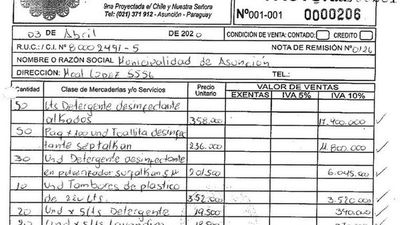 9na Proyectada e/ Chile y Nuestra Señora
Tel.: (021) 371 912 - Asunción - Paraguay
Nº001-001 0000206
03 de Abril de 2020
CONDICIÓN DE VENTA: CONTADO CREDITO
R.U.C./C.I. Nº 80002491-5 NOTA DE REMISIÓN Nº 0126
NOMBRE O RAZÓN SOCIAL Municipalidad de Asunción
DIRECCIÓN: Mcal Lopez 5556 TEL.:
Cantidad Clase de Mercaderías y/o Servicios Precio Unitario VALOR DE VENTAS
EXENTAS IVA 5% IVA 10%
50 Lts Detergente desinfectante
alkados 358.000 17.900.000
50 Paq x 100 und Toallita desinfec
tante septalkan 236.000 11.800.000
30 Und Detergente desinfectante
en pulverizador surfalkan 201.500 6.045.000
10 Und Tambores de plastico
de 220 Lts. 352.000 3.520.000
20 Und x 5 Lts Detergente 19.500 390.000
20 Und x 5 Lts Lavandina